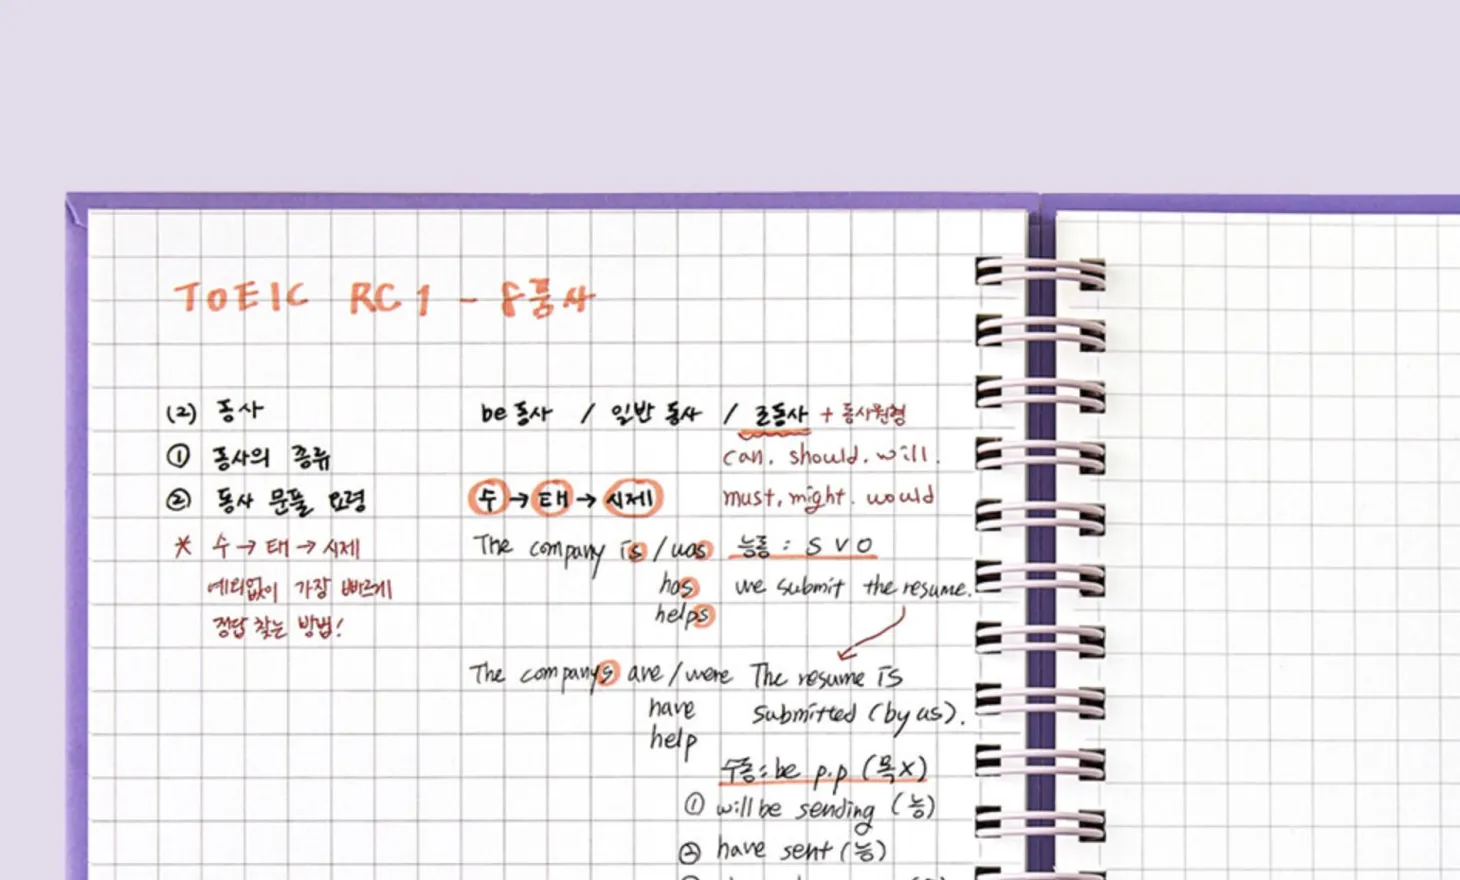 TOEIC RC 1 - 8품사
(2) 동사
① 동사의 종류
② 동사 문풀 요령
* 수 → 태 → 시제
예외없이 가장 빠르게
정답 찾는 방법!
be동사 / 일반 동사 / 조동사 + 동사원형
can, should, will.
must, might, would
수 → 태 → 시제
The company is / was
has
helps
The companys are / were
have
help
능동 : S V O
we submit the resume.
The resume is
submitted (by us).
수동 : be p.p (목X)
① will be sending (능)
② have sent (능)